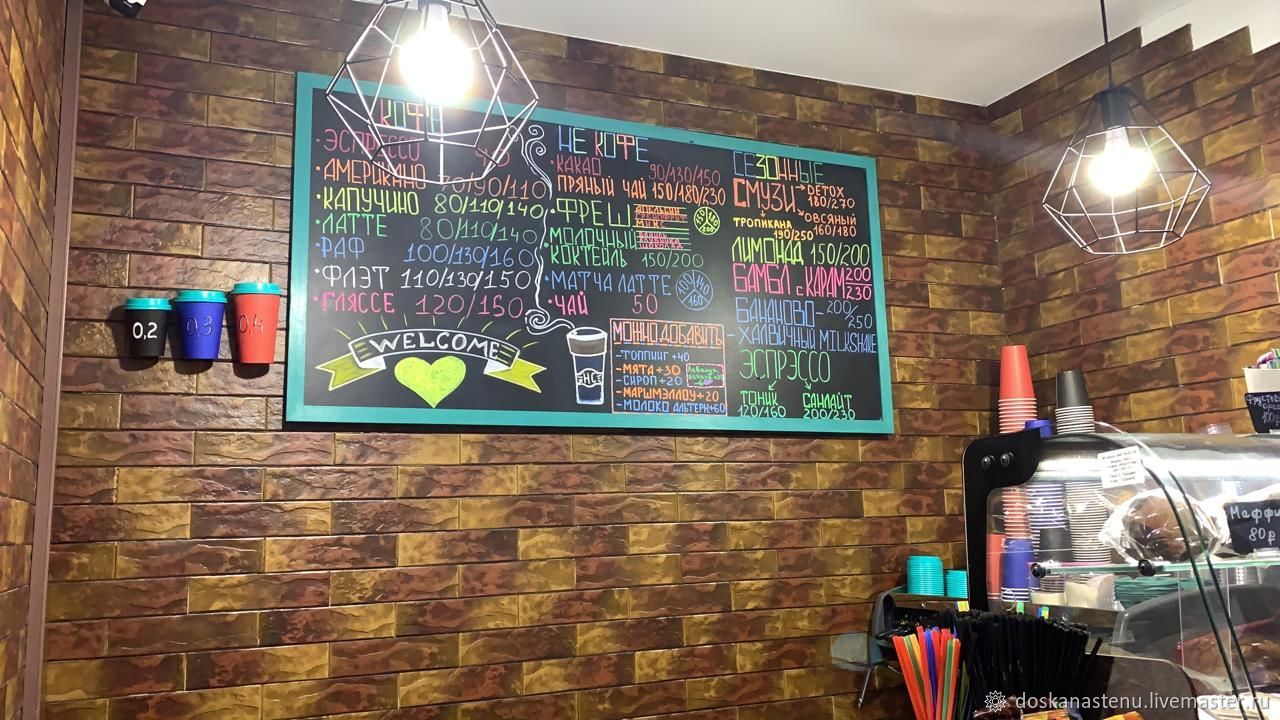 КОФЕ
ЭСПРЕССО
АМЕРИКАНО 70/90/110
КАПУЧИНО 80/110/140
ЛАТТЕ 80/110/140
РАФ 100/130/160
ФЛЭТ 110/130/150
ГЛЯССЕ 120/150
WELCOME
НЕ КОФЕ
КАКАО 90/130/150
ПРЯНЫЙ ЧАЙ 150/180/230
ФРЕШ
МОЛОЧНЫЙ
КОКТЕЙЛЬ 150/200
МАТЧА ЛАТТЕ
ЧАЙ 50
HC
МОЖНО ДОБАВИТЬ
-ТОППИНГ+40
-МЯТА+30
-СИРОП+20
-МАРШМЭЛЛОУ+20
-МОЛОКО АЛЬТЕРН+60
СЕЗОННЫЕ
СМУЗИ → DETOX
180/270
ОВСЯНЫЙ
160/180
ТРОПИКАНА
190/250
ЛИМОНАД 150/200
БАМБЛ с КАРАМ 200
230
БАНАНОВО- 200/
250
-ХАЛВИЧНЫЙ MILKSHAKE
ЭСПРЕССО
ТОНИК САНЛАЙТ
120/160 200/230
0,2 0,3 0,4
Маффи
80р
doskanastenu.livemaster.ru